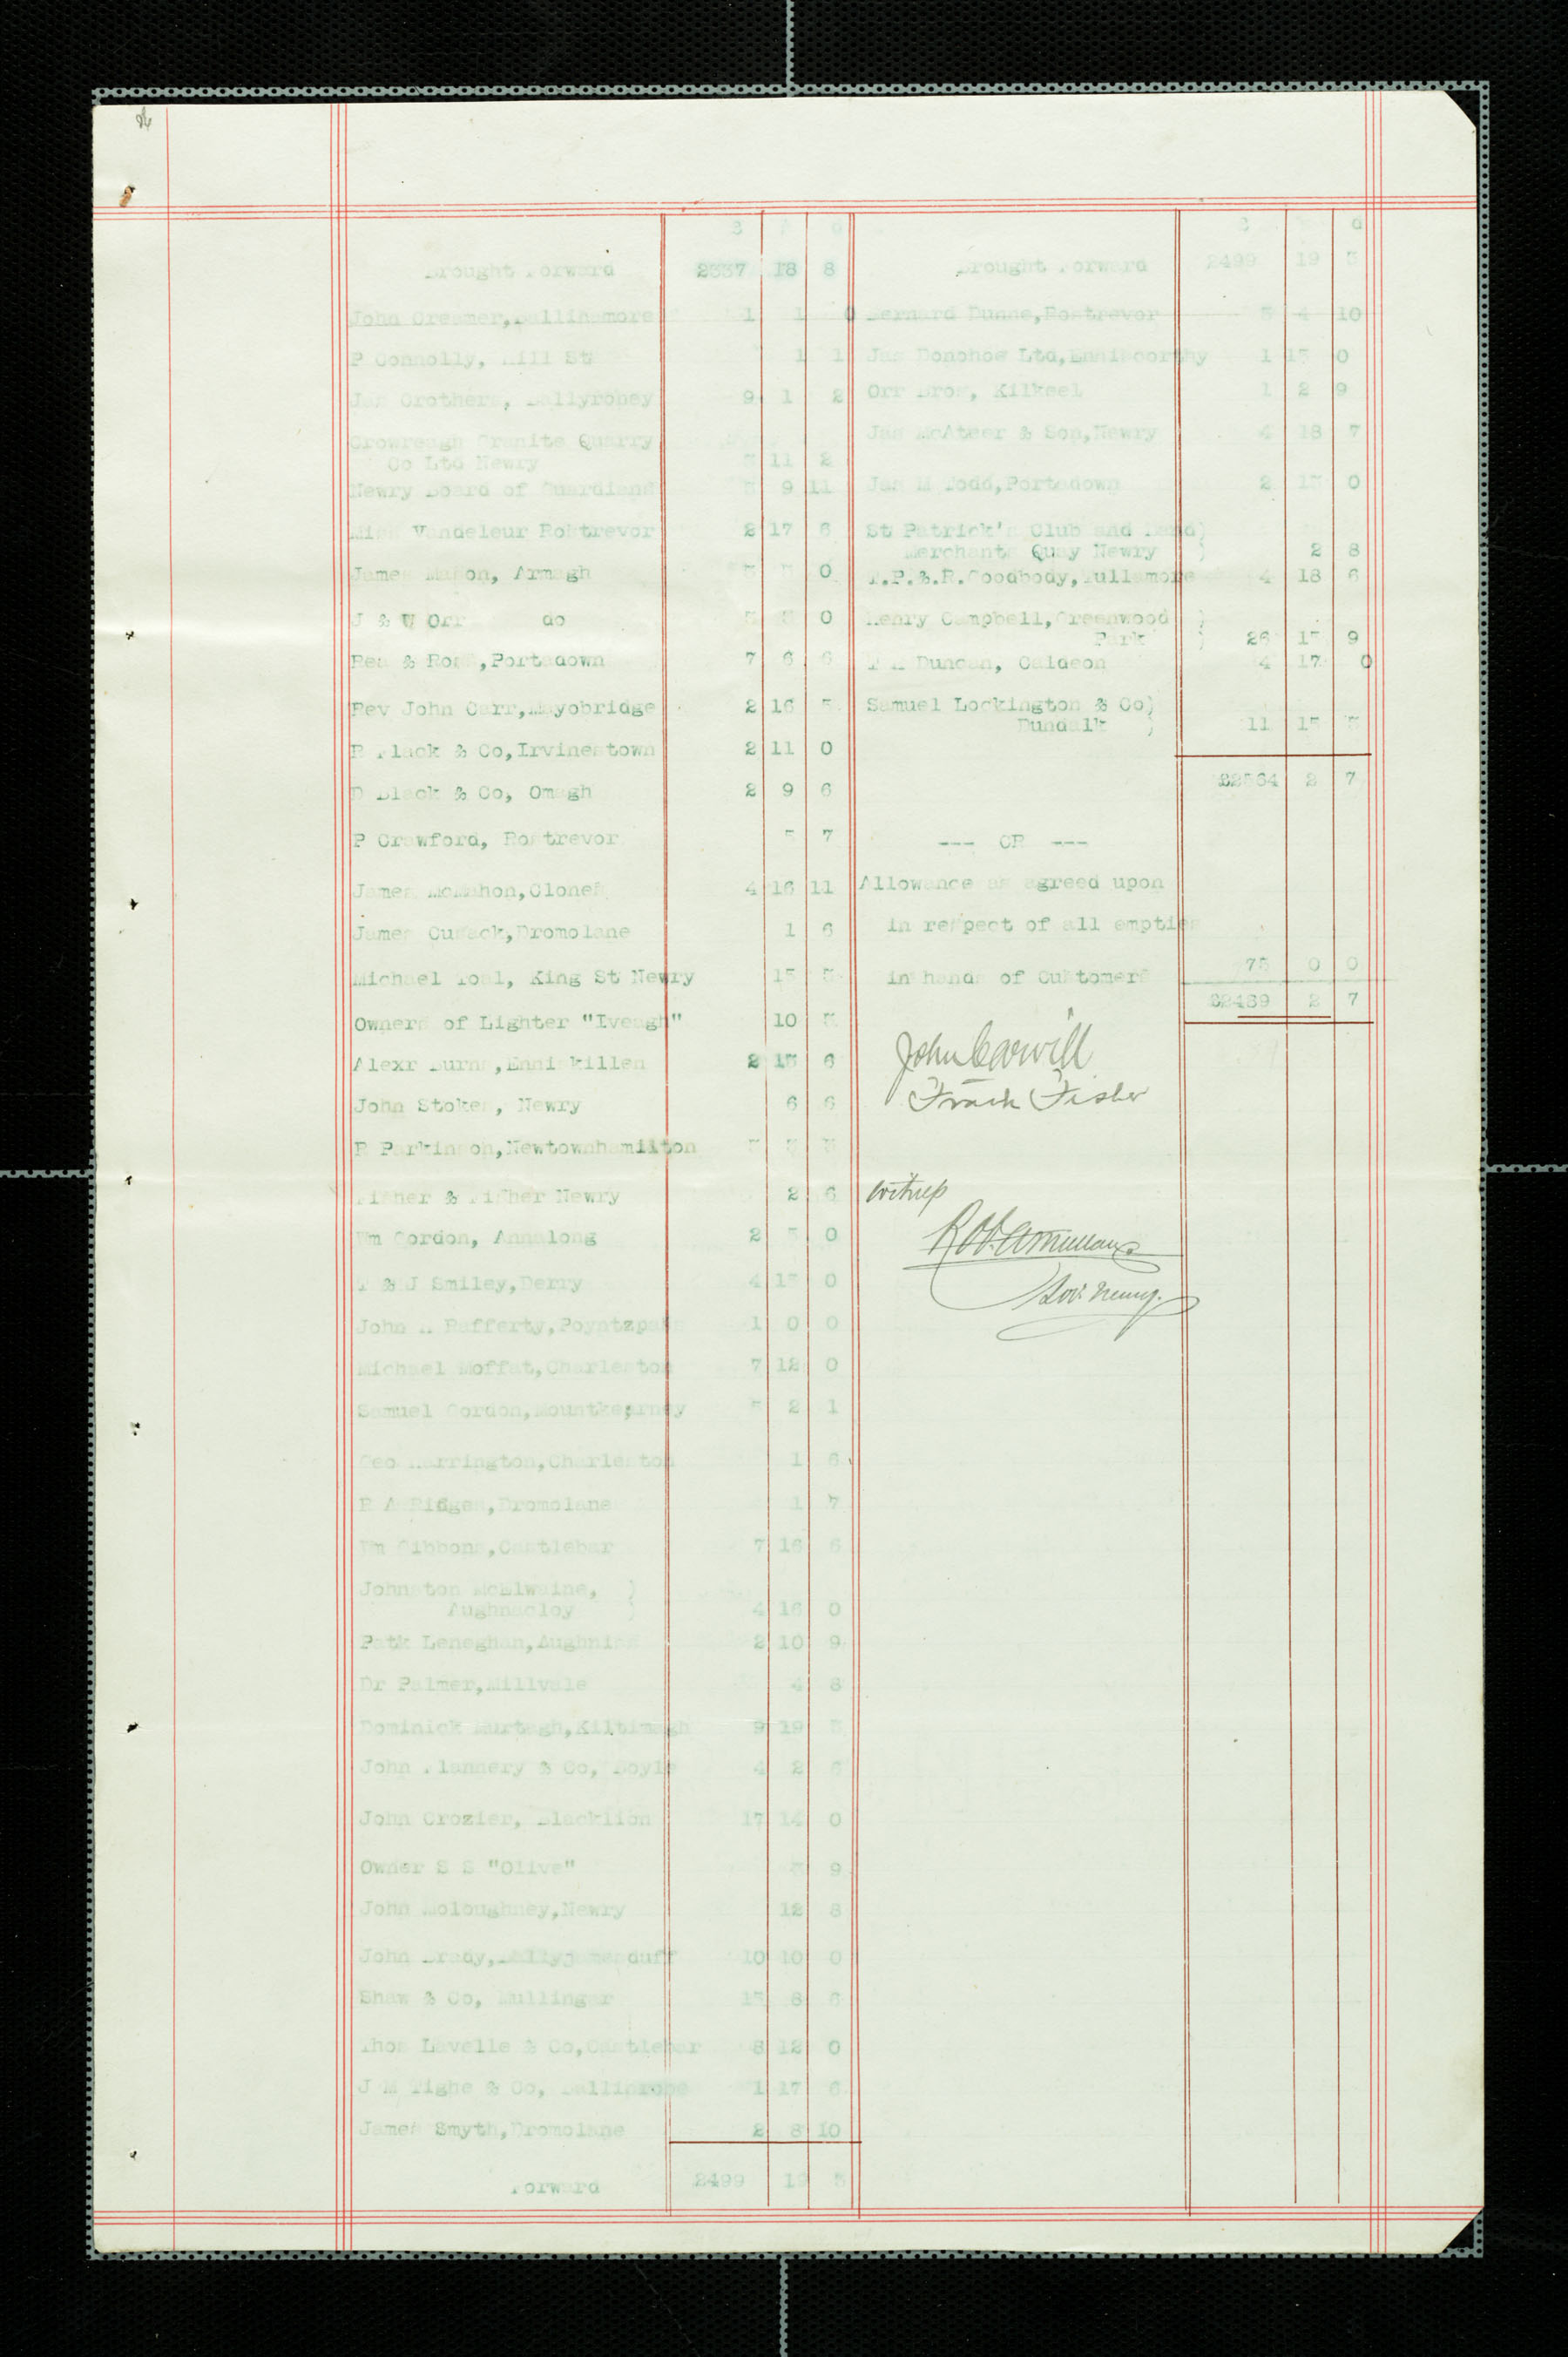 £ s d
Brought Forward 2337 18 8
John Creamer, Ballinamore 1 1 0
P Connolly, Mill St 1 1
Jas Crothers, Ballyroney 9 1 2
Crowreagh Granite Quarry
Co Ltd Newry 11 2
Newry Board of Guardians 9 11
Miss Vandeleur Rostrevor 2 17 6
James Mahon, Armagh 0
J & W Orr do 0
Rea & Ross, Portadown 7 6 6
Rev John Carr, Mayobridge 2 16
R Black & Co, Irvinestown 2 11 0
D Black & Co, Omagh 2 9 6
P Crawford, Rostrevor 5 7
James McMahon, Clones 4 16 11
James Cusack, Dromolane 1 6
Michael Toal, King St Newry 15
Owners of Lighter "Iveagh" 10
Alexr Burns, Enniskillen 2 15 6
John Stokes, Newry 6 6
R Parkinson, Newtownhamilton
Fisher & Fisher Newry 2 6
Wm Gordon, Annalong 2 5 0
T & J Smiley, Derry 4 15 0
John Rafferty, Poyntzpass 1 0 0
Michael Moffat, Charleston 7 12 0
Samuel Gordon, Mountkearney 5 2 1
Geo Harrington, Charleston 1 6
R A Ridges, Dromolane 1 7
Wm Gibbons, Castlebar 7 16 6
Johnston McElwaine, )
Aughnacloy ) 4 16 0
Patk Leneghan, Aughnish 2 10 9
Dr Palmer, Millvale 4 8
Dominick Murtagh, Kiltimagh 9 19
John Flannery & Co, Boyle 4 2 6
John Crozier, Blacklion 17 14 0
Owner S S "Olive" 9
John Moloughney, Newry 12 8
John Brady, Ballyjamesduff 10 10 0
Shaw & Co, Mullingar 15 8 6
Thos Lavelle & Co, Castlebar 8 12 0
J M Tighe & Co, Ballinrobe 1 17 6
James Smyth, Dromolane 2 8 10
Forward 2499 19
£ d
Brought Forward 2499 19
Bernard Dunne, Rostrevor 4 10
Jas Donohoe Ltd, Enniscorthy 1 15 0
Orr Bros, Kilkeel 1 2 9
Jas McAteer & Son, Newry 4 18 7
Jas M Todd, Portadown 2 15 0
St Patrick's Club and Band)
Merchants Quay Newry ) 2 8
T.P.&.R.Goodbody, Tullamore 4 18 6
Henry Campbell, Greenwood )
Park ) 26 15 9
Duncan, Caldeon 4 17 0
Samuel Lockington & Co)
Dundalk ) 11 15
£2564 2 7
--- CR ---
Allowance as agreed upon
in respect of all empties
in hands of Customers 75 0 0
£2489 2 7
John Carvill
Frank Fisher
Witness
Solr. Newry.